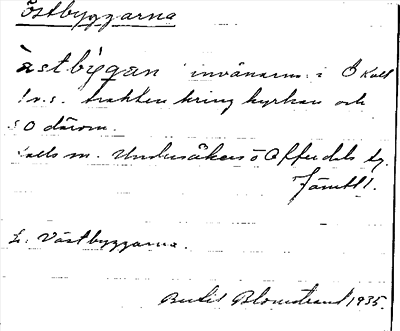 Östbyggarna
àstbýgan invånarna i Ö Kall
l. v. s. trakten kring kyrkan och
s o därom.
Kalls sn. Undersåkers o Offerdals tg.
Jämtl.
L. Västbyggarna.
Bertil Blomstrand 1935.